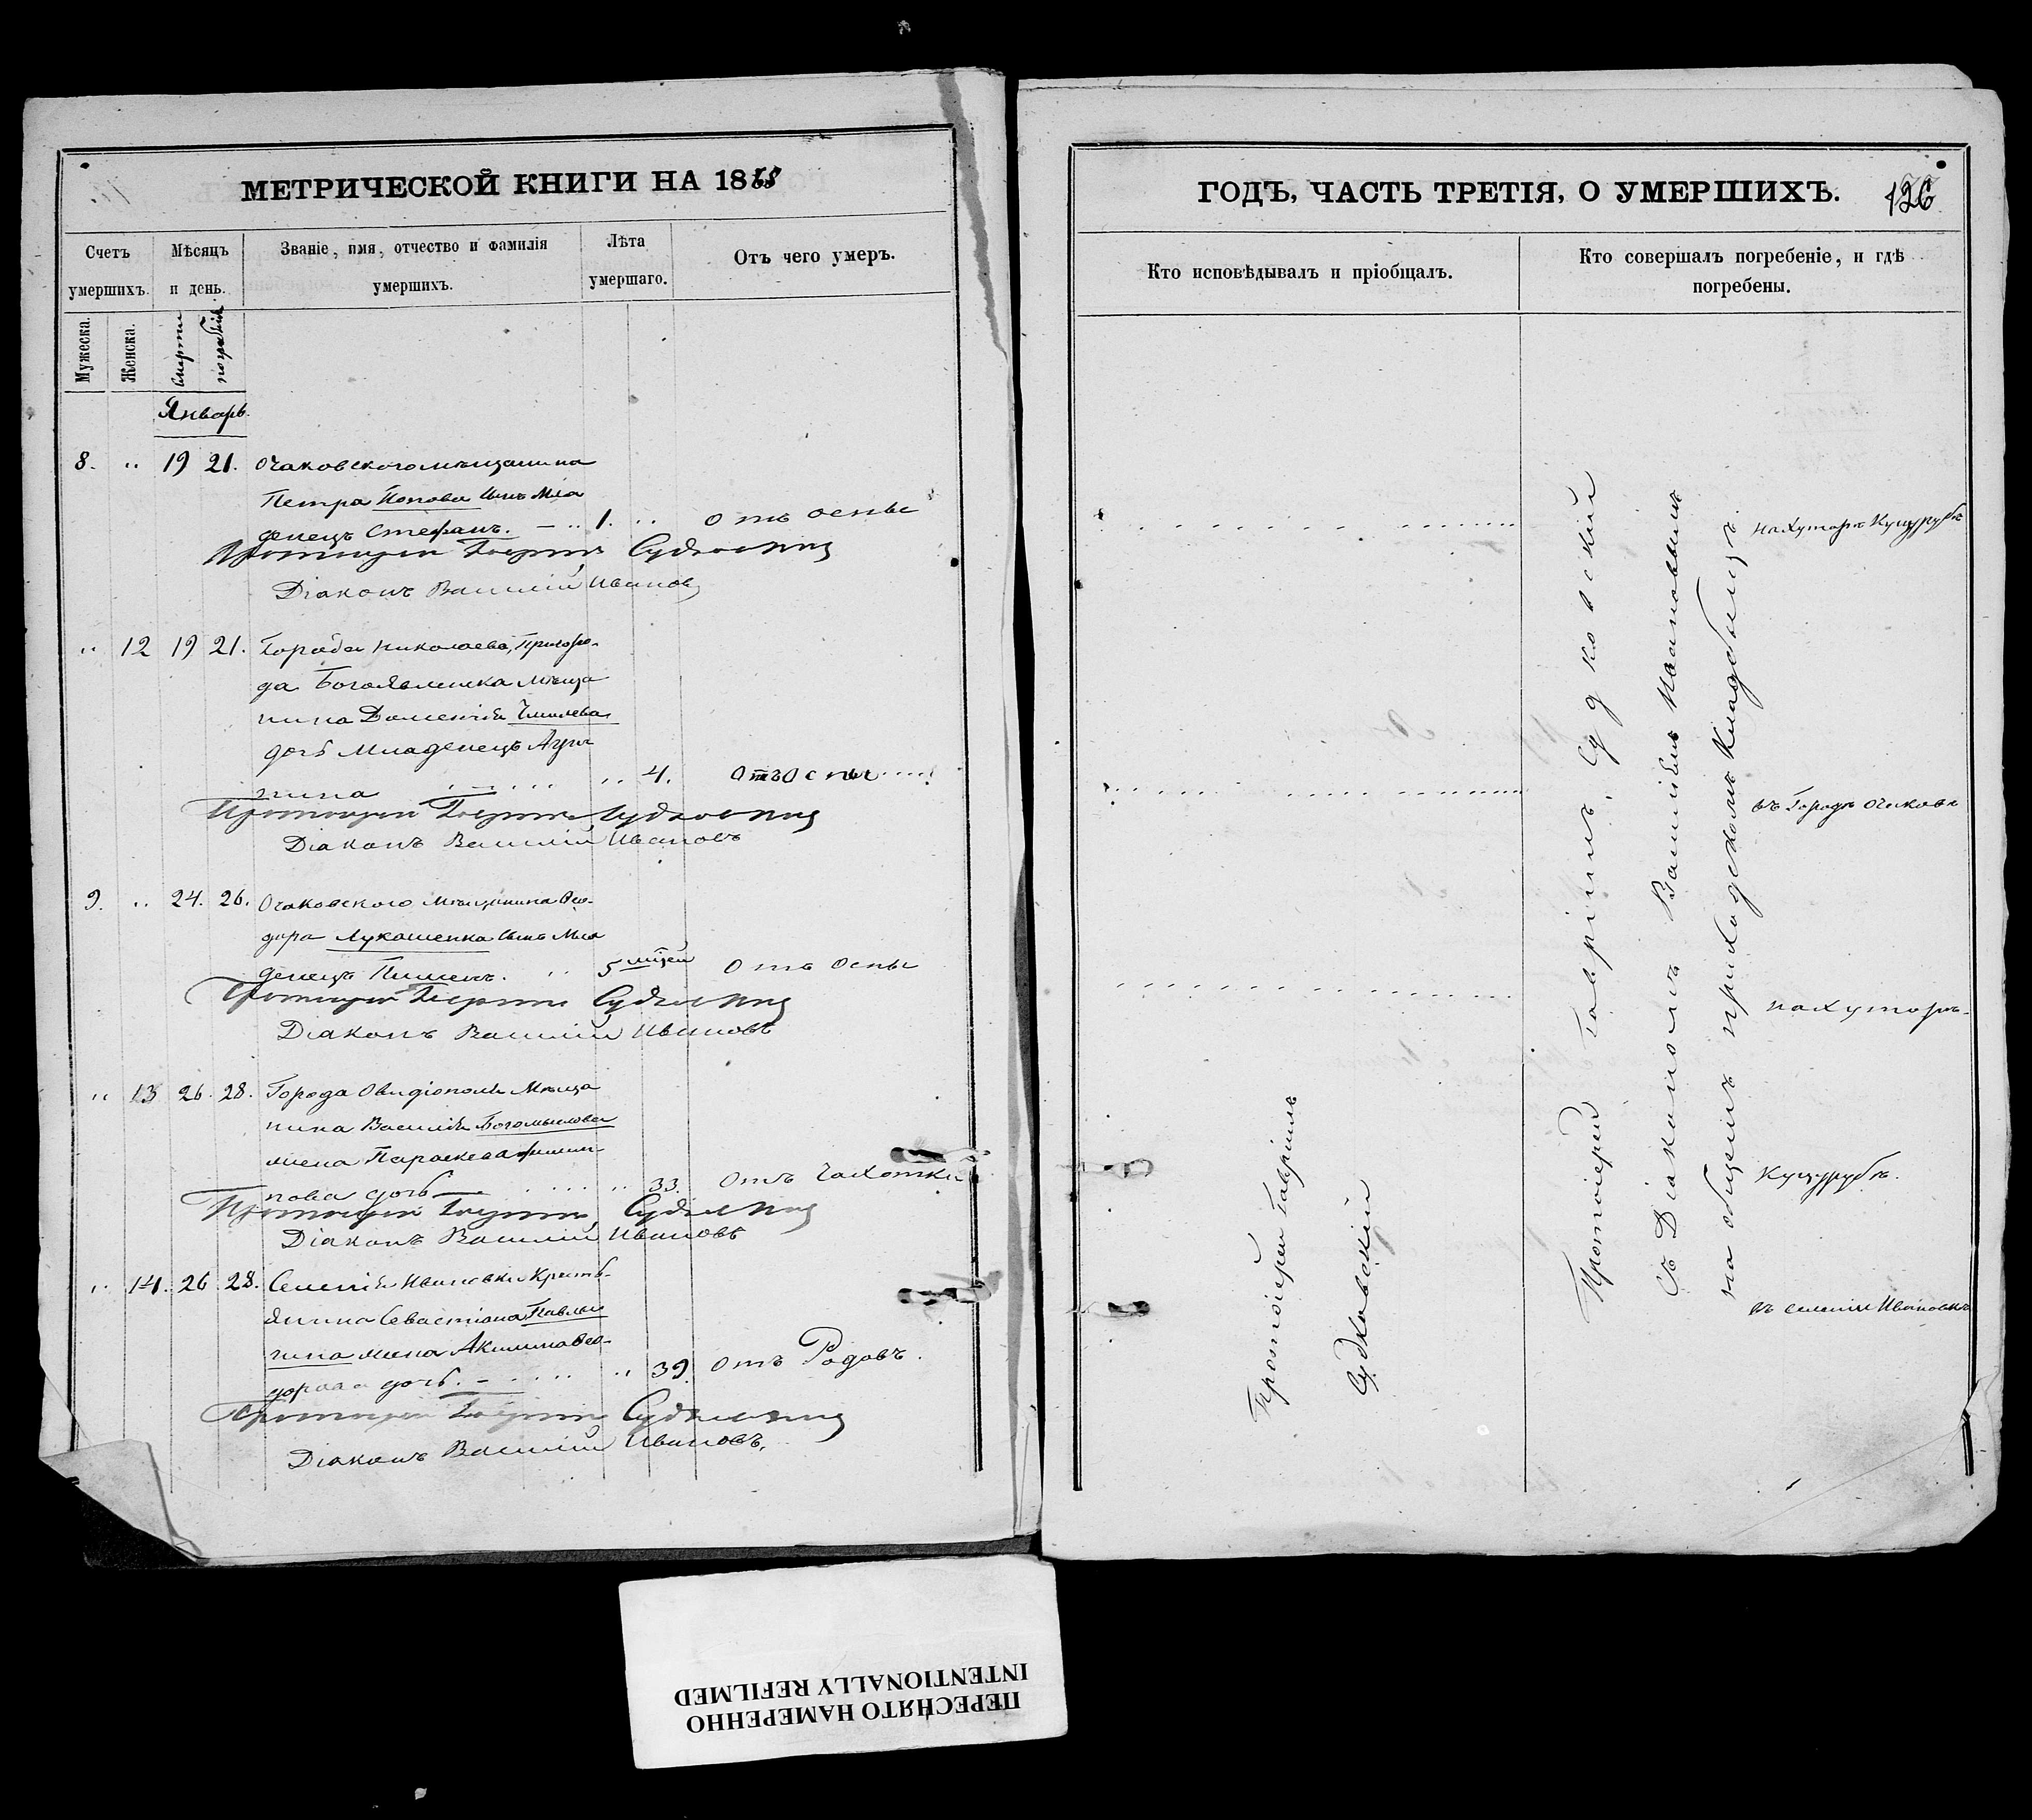 МЕТРИЧЕСКОЙ КНИГИ НА 18
Счетъ умершихъ.
Мѣсяцъ и день.
Званіе, имя, отчество и фамилія умершихъ.
Лѣта умершаго.
Отъ чего умеръ.
Мужеска.
Женска.
смерти
погребенія
Январь.
8. " 19 21. Очаковскаго мѣщанина
Петра Попова сынъ Мла
денецъ Стефанъ. 1. " Отъ оспы
Протоіерей Гавріилъ Судковскій
Діаконъ Василій Ивановъ
" 12 19 21. Города Николаева, Пригоро-
да Богоявленска мѣща
нина Дометія
дочь Младенецъ Агри
пина " 4. Отъ Оспы
Протоіерей Гавріилъ Судковскій
Діаконъ Василій Ивановъ
9. " 24. 26. Очаковского мѣщанина Ѳео-
дора Лукашенка сынъ Мла
денецъ Пименъ. " 5 мцей Отъ Оспы
Протоіерей Гавріилъ Судковскій
Діаконъ Василій Ивановъ
" 13 26. 28. Города Овидіополя Мѣща
нина Василія Богомылова
жена Параскева Филип
пова дочь " 33. Отъ Чахотки
Протоіерей Гавріилъ Судковскій
Діаконъ Василій Ивановъ
" 14. 26 28. Селенія Ивановки Кресть-
янина Севастіана Павлы
жена Акилина Ѳео-
дорова дочь. " 39. Отъ Родовъ.
Протоіерей Гавріилъ Судковскій
Діаконъ Василій Ивановъ.
ГОДЪ, ЧАСТЬ ТРЕТІЯ, О УМЕРШИХЪ. 126
Кто исповѣдывалъ и пріобщалъ.
Кто совершалъ погребеніе, и гдѣ погребены.
Протоіерей Гавріилъ
Судковскій
Протоіерей Гавріилъ Судковскій
съ Діакономъ Василіемъ Ивановымъ
на общемъ приходскомъ кладбищѣ.
на хуторѣ Куцурубѣ
въ Городѣ Очаковѣ
на Хуторѣ-
Куцурубѣ.
въ селеніи Ивановкѣ
ПЕРЕСНЯТО НАМЕРЕННО
INTENTIONALLY REFILMED